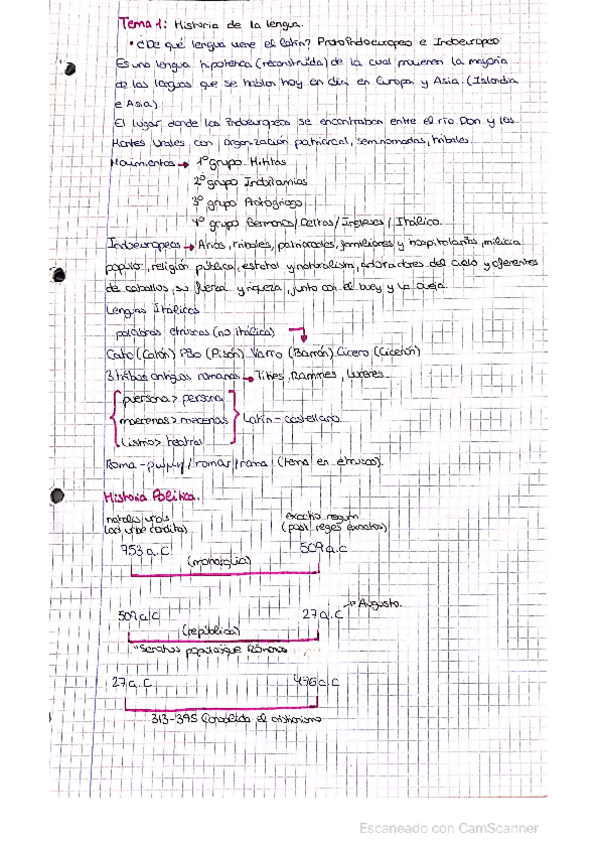 Tema 1: Historia de la lengua.
• ¿De qué lengua viene el latín? Protoindoeuropeo e Indoeuropeo
Es una lengua hipotética (reconstruida) de la cual provienen la mayoría
de las lenguas que se hablan hoy en día en Europa y Asia. (Islandia
e Asia)
El lugar donde los indoeuropeos se encontraban entre el río Don y los
Montes Urales con organización patriarcal, seminomadas, tribales.
Movimientos → 1º grupo Hititas
2º grupo
3º grupo
4º grupo Germanos/Celtas/ /Itálico.
Indoeuropeos → Arios, tribales, patriarcales, familiares y hospitalarios, milicia
popular, religión pública, estatal y naturalism, adoradores del cielo y oferentes
de caballos, su fuerza y riqueza, junto con el buey y la oveja.
Lenguas Itálicas
palabras etruscas (no itálica)
Cato (Catón) Piso (Pisón) Varro (Barrón) Cicero (Cicerón)
3 tribus antiguas romanas → Tities, Ramnes, Luceres.
persona
> mecenas Latín - castellano
teatral
Roma - /rumas/ruma (tema en etrusco).
Historia Política.
natalis urbis exactio regum
(ab urbe condita) (post reges exactos)
753 a.C 509 a.C
(monarquía)
509 a.C 27 a.C → Augusto.
(república)
27 a.C 476 d.C
313-395 Consolida el cristianismo
Escaneado con CamScanner